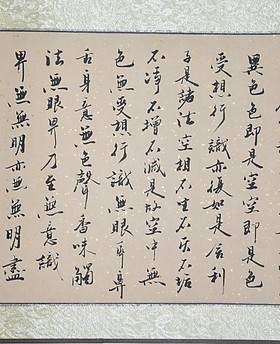 異色色即是空空即是色
受想行識亦復如是舍利
子是諸法空相不生不滅不垢
不淨不增不減是故空中無
色無受想行識無眼耳鼻
舌身意無色聲香味觸
法無眼界乃至無意識
界無無明亦無無明盡